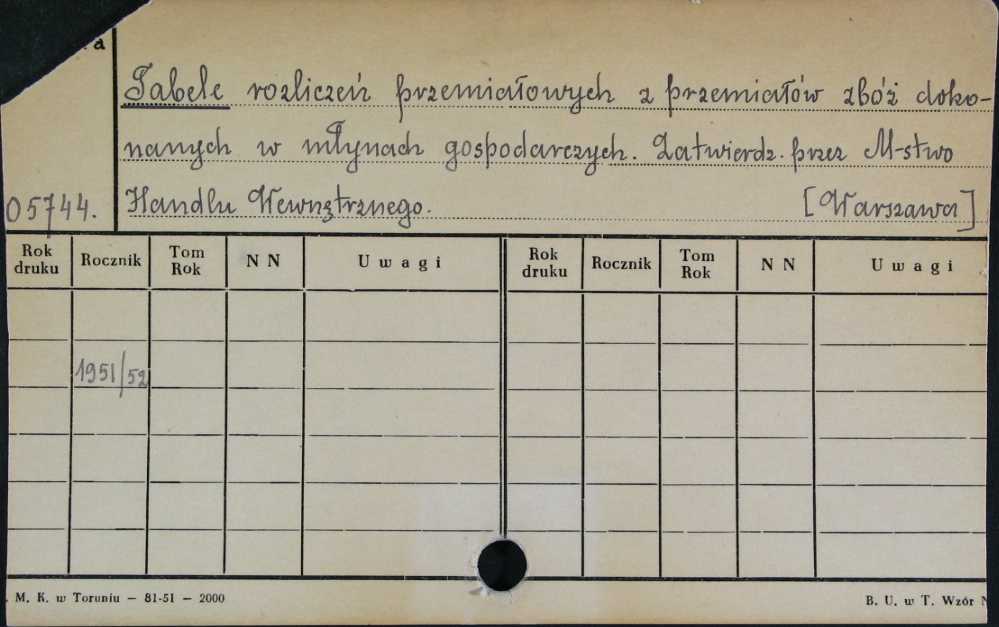 Tabele rozliczeń przemiałowych z przemiałów zbóż doko-
nanych w młynach gospodarczych. Zatwierdz. przez M-stwo
05744. Handlu Wewnętrznego. [Warszawa]
Rok druku Rocznik Tom Rok N N Uwagi Rok druku Rocznik Tom Rok N N Uwagi
1951/52
. M. K. w Toruniu — 81-51 — 2000 B. U. w T. Wzór